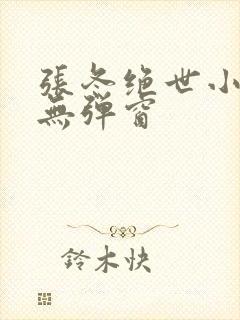 張冬绝世小
無弹窗
鈴木快